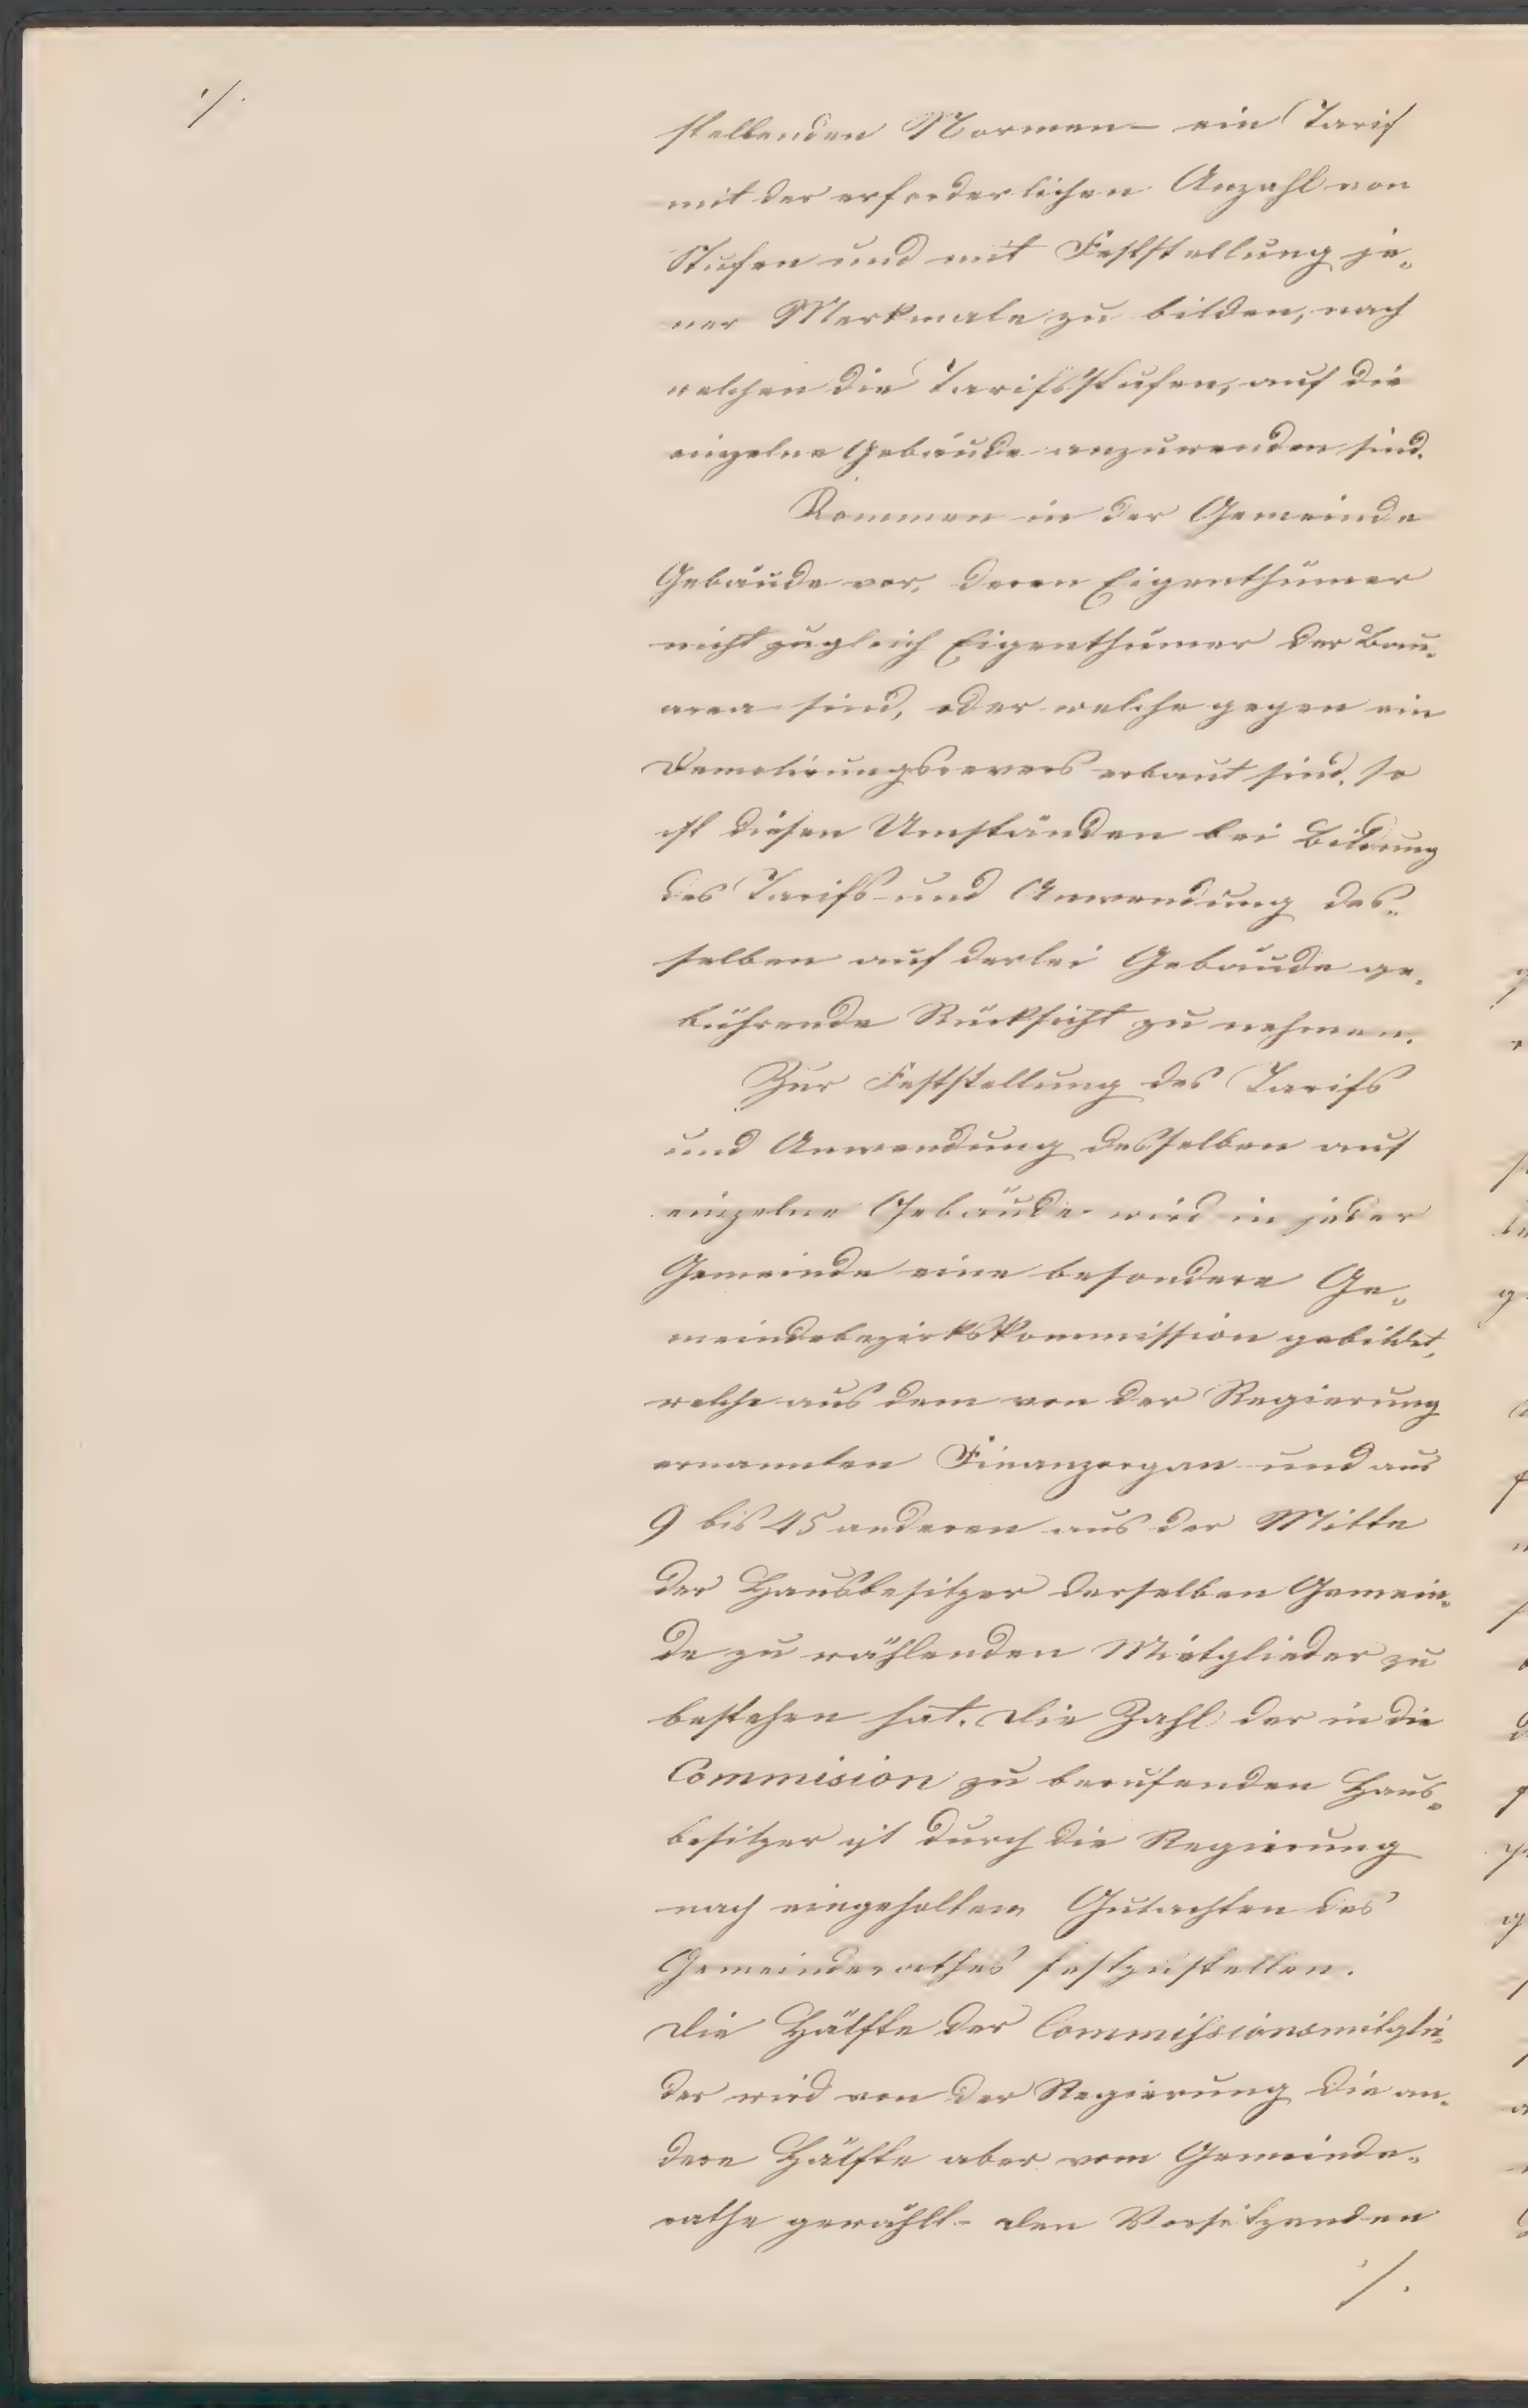 ·/.
stellenden Normen – ein Tarif
mit der erforderlichen Anzahl von
Stufen und mit Feststellung je„
ner Merkmale zu bilden, nach
welchen die Tarifsstufen, auf die
einzelne Gebäude anzuwenden sind.
Kommen in der Gemeinde
Gebäude vor, deren Eigenthümer
nicht zugleich Eigenthümer der Bau„
area sind, oder welche gegen ein
Demolirungsrevers erbaut sind, so
ist diesen Umständen bei Bildung
des Tarifs und Anwendung des„
selben auf derlei Gebäude ge„
bührende Rücksicht zu nehmen.
Zur Feststellung des Tarifs
und Anwendung desselben auf
einzelne Gebäude wird in jeder
Gemeinde eine besondere Ge„
meindebezirkskommission gebildet,
welche aus dem von der Regierung
ernannten Finanzorgan und aus
9 bis 45 anderen aus der Mitte
der Hausbesitzer derselben Gemein„
de zu wählenden Mitglieder zu
bestehen hat. Die Zahl der in die
Commision zu berufenden Haus„
besitzer ist durch die Regierung
nach eingeholtem Gutachten des
Gemeinderathes festzustellen.
Die Hälfte der Commissionsmitglie„
der wird von der Regierung die an„
dere Hälfte aber vom Gemeinde„
rathe gewählt – den Vorsitzenden
·/.